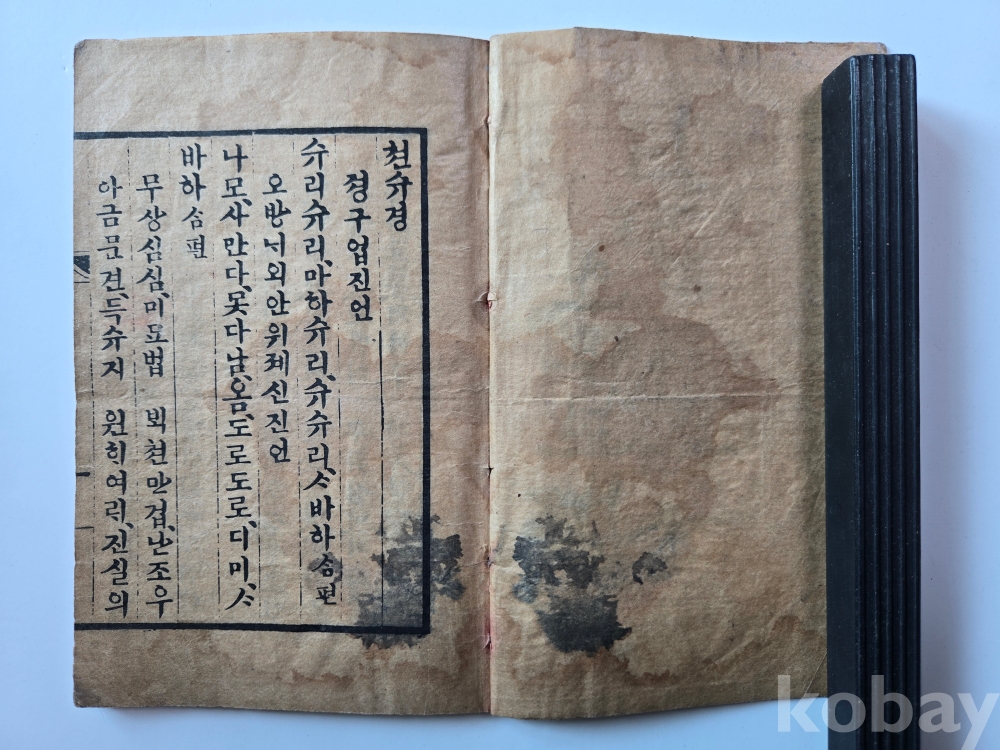 천슈경
졍구업진언
슈리슈리、마하슈리、슈슈리、ᄉᆞ바하 슴편
오방ᄂᆡ외안위졔신진언
나모、사만다、못다남、옴、도로도로、디미、ᄉᆞ
바하 슴편
무상심심、미묘법 ᄇᆡᆨ쳔만겁、난조우
아금문견、득슈지 원ᄒᆡ여ᄅᆡ、진실의
kobay